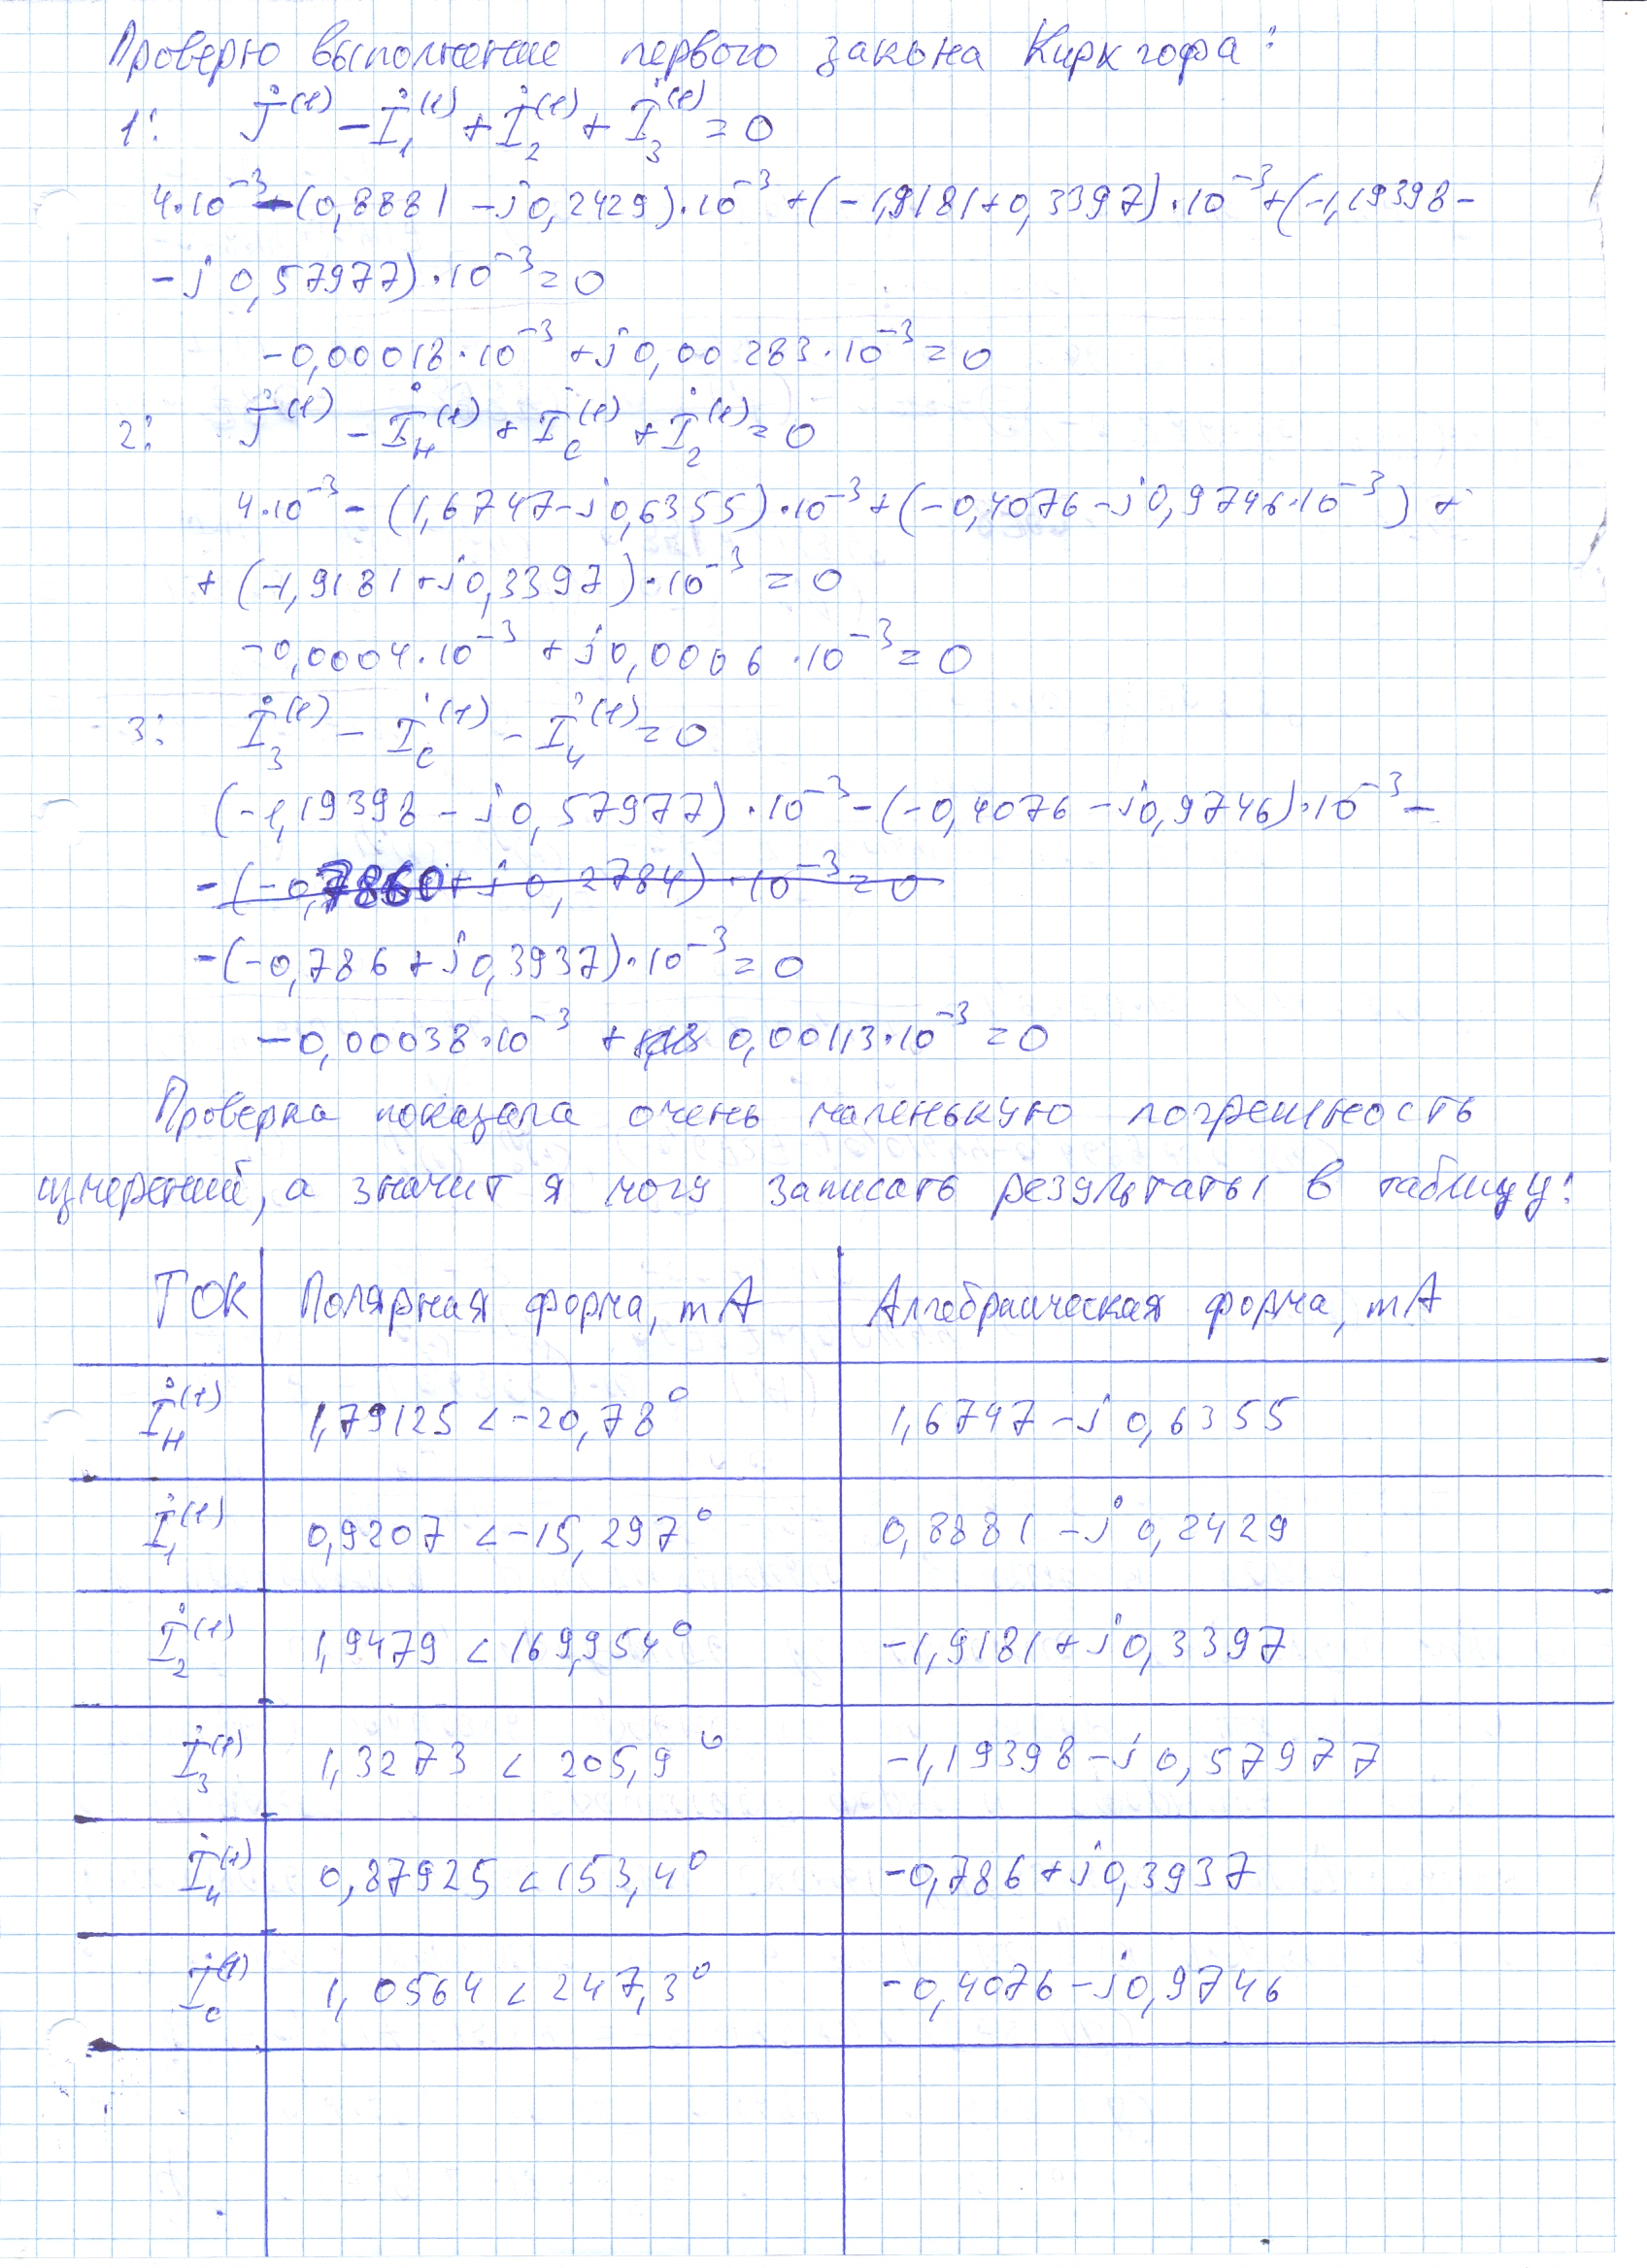 Проверю выполнение первого закона Кирхгофа:
1: J̇⁽¹⁾ − İ₁⁽¹⁾ + İ₂⁽¹⁾ + İ₃⁽¹⁾ = 0
4·10⁻³ − (0,8881 − j0,2429)·10⁻³ + (−1,9181 + 0,3397)·10⁻³ + (−1,19398 −
− j 0,57977)·10⁻³ = 0
−0,00018·10⁻³ + j0,00283·10⁻³ = 0
2: J̇⁽¹⁾ − İн⁽¹⁾ + İc⁽¹⁾ + İ₂⁽¹⁾ = 0
4·10⁻³ − (1,6747 − j0,6355)·10⁻³ + (−0,4076 − j0,9746·10⁻³) +
+ (−1,9181 + j0,3397)·10⁻³ = 0
−0,0004·10⁻³ + j0,0006·10⁻³ = 0
3: İ₃⁽¹⁾ − İc⁽¹⁾ − İ₄⁽¹⁾ = 0
(−1,19398 − j0,57977)·10⁻³ − (−0,4076 − j0,9746)·10⁻³ −
− (−0,7860 + j0,2784)·10⁻³ = 0
−(−0,786 + j0,3937)·10⁻³ = 0
−0,00038·10⁻³ + 0,00113·10⁻³ = 0
Проверка показала очень маленькую погрешность
измерений, а значит я могу записать результаты в таблицу:
ТОК Полярная форма, mA Алгебраическая форма, mA
İн⁽¹⁾ 1,79125 < −20,78° 1,6747 − j0,6355
İ₁⁽¹⁾ 0,9207 < −15,297° 0,8881 − j0,2429
İ₂⁽¹⁾ 1,9479 < 169,954° −1,9181 + j0,3397
İ₃⁽¹⁾ 1,3273 < 205,9° −1,19398 − j0,57977
İ₄⁽¹⁾ 0,87925 < 153,4° −0,786 + j0,3937
İc⁽¹⁾ 1,0564 < 247,3° −0,4076 − j0,9746